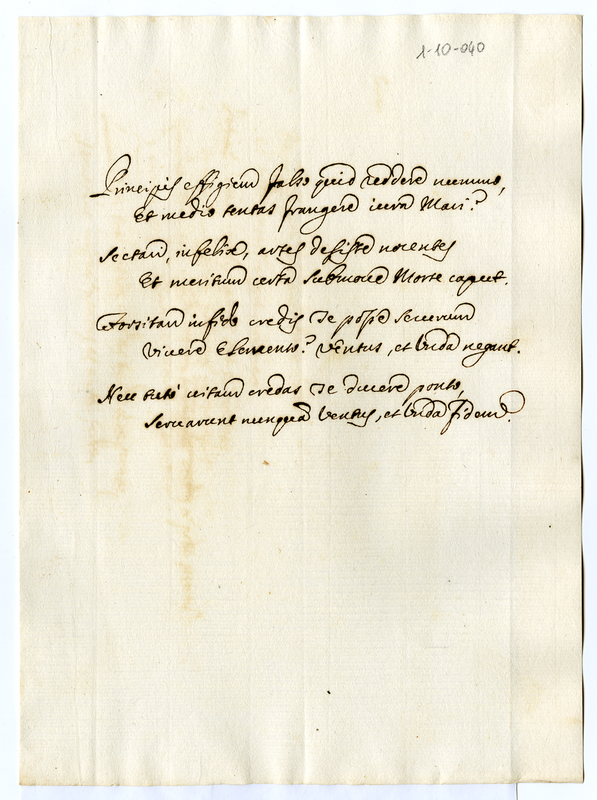 1-10-040
Principis effigiem falso quid reddere nummo,
Et medio tentas frangere iura Mari?
Sectari, infelix, artes desiste nocentes
Et meritum certa submove Morte caput.
Forsitan infido credis te posse securum
Vivere Elemento? Ventus, et Unda negant.
Neu tutò vitam credas te ducere ponto,
Servarunt nunquã Ventus, et Unda fidem.